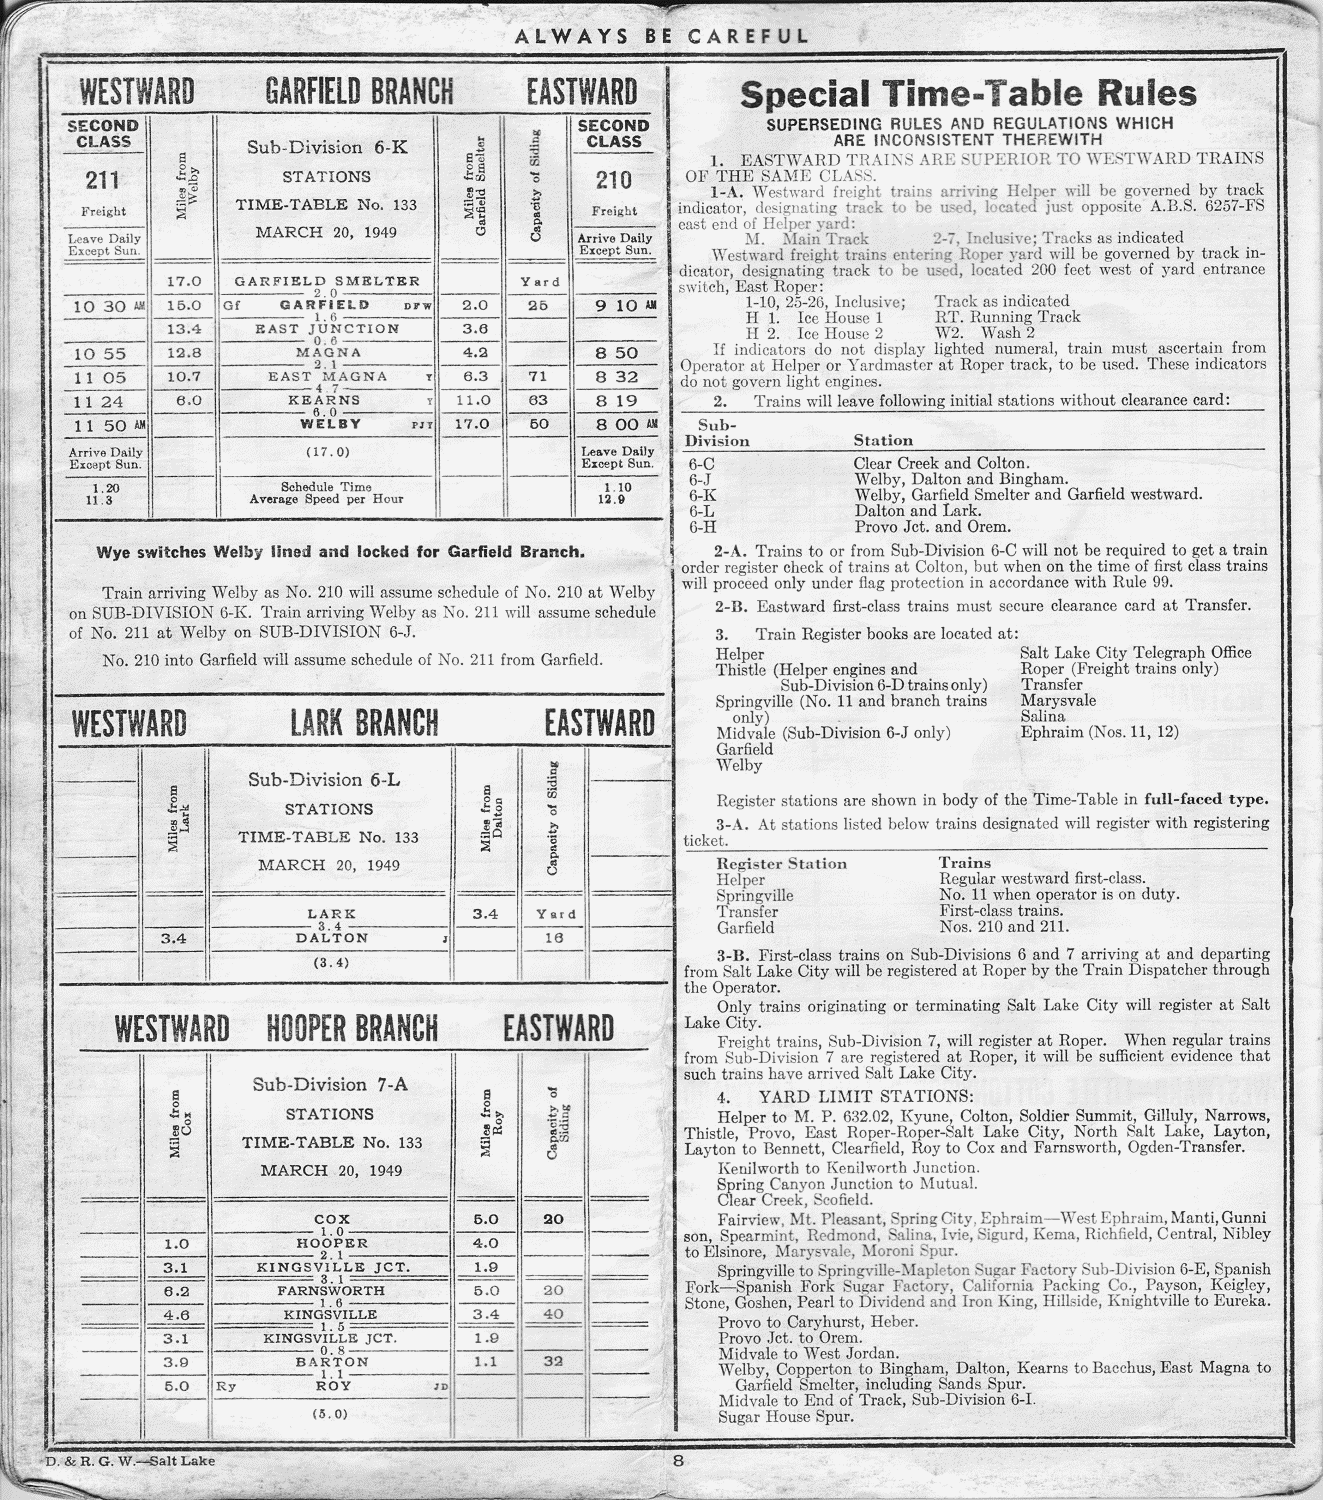 ALWAYS BE CAREFUL
WESTWARD GARFIELD BRANCH EASTWARD
SECOND CLASS Miles from Welby Sub-Division 6-K Miles from Garfield Smelter Capacity of Siding SECOND CLASS
211 STATIONS 210
Freight TIME-TABLE No. 133 Freight
Leave Daily Except Sun. MARCH 20, 1949 Arrive Daily Except Sun.
17.0 GARFIELD SMELTER Yard
2.0
10 30 AM 15.0 Gf GARFIELD DFW 2.0 25 9 10 AM
1.6
13.4 EAST JUNCTION 3.6
0.6
10 55 12.8 MAGNA 4.2 8 50
2.1
11 05 10.7 EAST MAGNA Y 6.3 71 8 32
4.7
11 24 6.0 KEARNS Y 11.0 63 8 19
6.0
11 50 AM WELBY PJY 17.0 50 8 00 AM
Arrive Daily Except Sun. (17.0) Leave Daily Except Sun.
1.20 Schedule Time 1.10
11.3 Average Speed per Hour 12.9
Wye switches Welby lined and locked for Garfield Branch.
Train arriving Welby as No. 210 will assume schedule of No. 210 at Welby
on SUB-DIVISION 6-K. Train arriving Welby as No. 211 will assume schedule
of No. 211 at Welby on SUB-DIVISION 6-J.
No. 210 into Garfield will assume schedule of No. 211 from Garfield.
WESTWARD LARK BRANCH EASTWARD
Miles from Lark Sub-Division 6-L Miles from Dalton Capacity of Siding
STATIONS
TIME-TABLE No. 133
MARCH 20, 1949
LARK 3.4 Yard
3.4
3.4 DALTON J 16
(3.4)
WESTWARD HOOPER BRANCH EASTWARD
Miles from Cox Sub-Division 7-A Miles from Roy Capacity of Siding
STATIONS
TIME-TABLE No. 133
MARCH 20, 1949
COX 5.0 20
1.0
1.0 HOOPER 4.0
2.1
3.1 KINGSVILLE JCT. 1.9
3.1
6.2 FARNSWORTH 5.0 20
1.6
4.6 KINGSVILLE 3.4 40
1.5
3.1 KINGSVILLE JCT. 1.9
0.8
3.9 BARTON 1.1 32
1.1
5.0 Ry ROY JD
(5.0)
Special Time-Table Rules
SUPERSEDING RULES AND REGULATIONS WHICH
ARE INCONSISTENT THEREWITH
1. EASTWARD TRAINS ARE SUPERIOR TO WESTWARD TRAINS
OF THE SAME CLASS.
1-A. Westward freight trains arriving Helper will be governed by track
indicator, designating track to be used, located just opposite A.B.S. 6257-FS
east end of Helper yard:
M. Main Track 2-7, Inclusive; Tracks as indicated
Westward freight trains entering Roper yard will be governed by track in-
dicator, designating track to be used, located 200 feet west of yard entrance
switch, East Roper:
1-10, 25-26, Inclusive; Track as indicated
H 1. Ice House 1 RT. Running Track
H 2. Ice House 2 W2. Wash 2
If indicators do not display lighted numeral, train must ascertain from
Operator at Helper or Yardmaster at Roper track, to be used. These indicators
do not govern light engines.
2. Trains will leave following initial stations without clearance card:
Sub-
Division Station
6-C Clear Creek and Colton.
6-J Welby, Dalton and Bingham.
6-K Welby, Garfield Smelter and Garfield westward.
6-L Dalton and Lark.
6-H Provo Jct. and Orem.
2-A. Trains to or from Sub-Division 6-C will not be required to get a train
order register check of trains at Colton, but when on the time of first class trains
will proceed only under flag protection in accordance with Rule 99.
2-B. Eastward first-class trains must secure clearance card at Transfer.
3. Train Register books are located at:
Helper Salt Lake City Telegraph Office
Thistle (Helper engines and Roper (Freight trains only)
Sub-Division 6-D trains only) Transfer
Springville (No. 11 and branch trains Marysvale
only) Salina
Midvale (Sub-Division 6-J only) Ephraim (Nos. 11, 12)
Garfield
Welby
Register stations are shown in body of the Time-Table in full-faced type.
3-A. At stations listed below trains designated will register with registering
ticket.
Register Station Trains
Helper Regular westward first-class.
Springville No. 11 when operator is on duty.
Transfer First-class trains.
Garfield Nos. 210 and 211.
3-B. First-class trains on Sub-Divisions 6 and 7 arriving at and departing
from Salt Lake City will be registered at Roper by the Train Dispatcher through
the Operator.
Only trains originating or terminating Salt Lake City will register at Salt
Lake City.
Freight trains, Sub-Division 7, will register at Roper. When regular trains
from Sub-Division 7 are registered at Roper, it will be sufficient evidence that
such trains have arrived Salt Lake City.
4. YARD LIMIT STATIONS:
Helper to M. P. 632.02, Kyune, Colton, Soldier Summit, Gilluly, Narrows,
Thistle, Provo, East Roper-Roper-Salt Lake City, North Salt Lake, Layton,
Layton to Bennett, Clearfield, Roy to Cox and Farnsworth, Ogden-Transfer.
Kenilworth to Kenilworth Junction.
Spring Canyon Junction to Mutual.
Clear Creek, Scofield.
Fairview, Mt. Pleasant, Spring City, Ephraim—West Ephraim, Manti, Gunni
son, Spearmint, Redmond, Salina, Ivie, Sigurd, Kema, Richfield, Central, Nibley
to Elsinore, Marysvale, Moroni Spur.
Springville to Springville-Mapleton Sugar Factory Sub-Division 6-E, Spanish
Fork—Spanish Fork Sugar Factory, California Packing Co., Payson, Keigley,
Stone, Goshen, Pearl to Dividend and Iron King, Hillside, Knightville to Eureka.
Provo to Caryhurst, Heber.
Provo Jct. to Orem.
Midvale to West Jordan.
Welby, Copperton to Bingham, Dalton, Kearns to Bacchus, East Magna to
Garfield Smelter, including Sands Spur.
Midvale to End of Track, Sub-Division 6-I.
Sugar House Spur.
D. & R. G. W.—Salt Lake 8